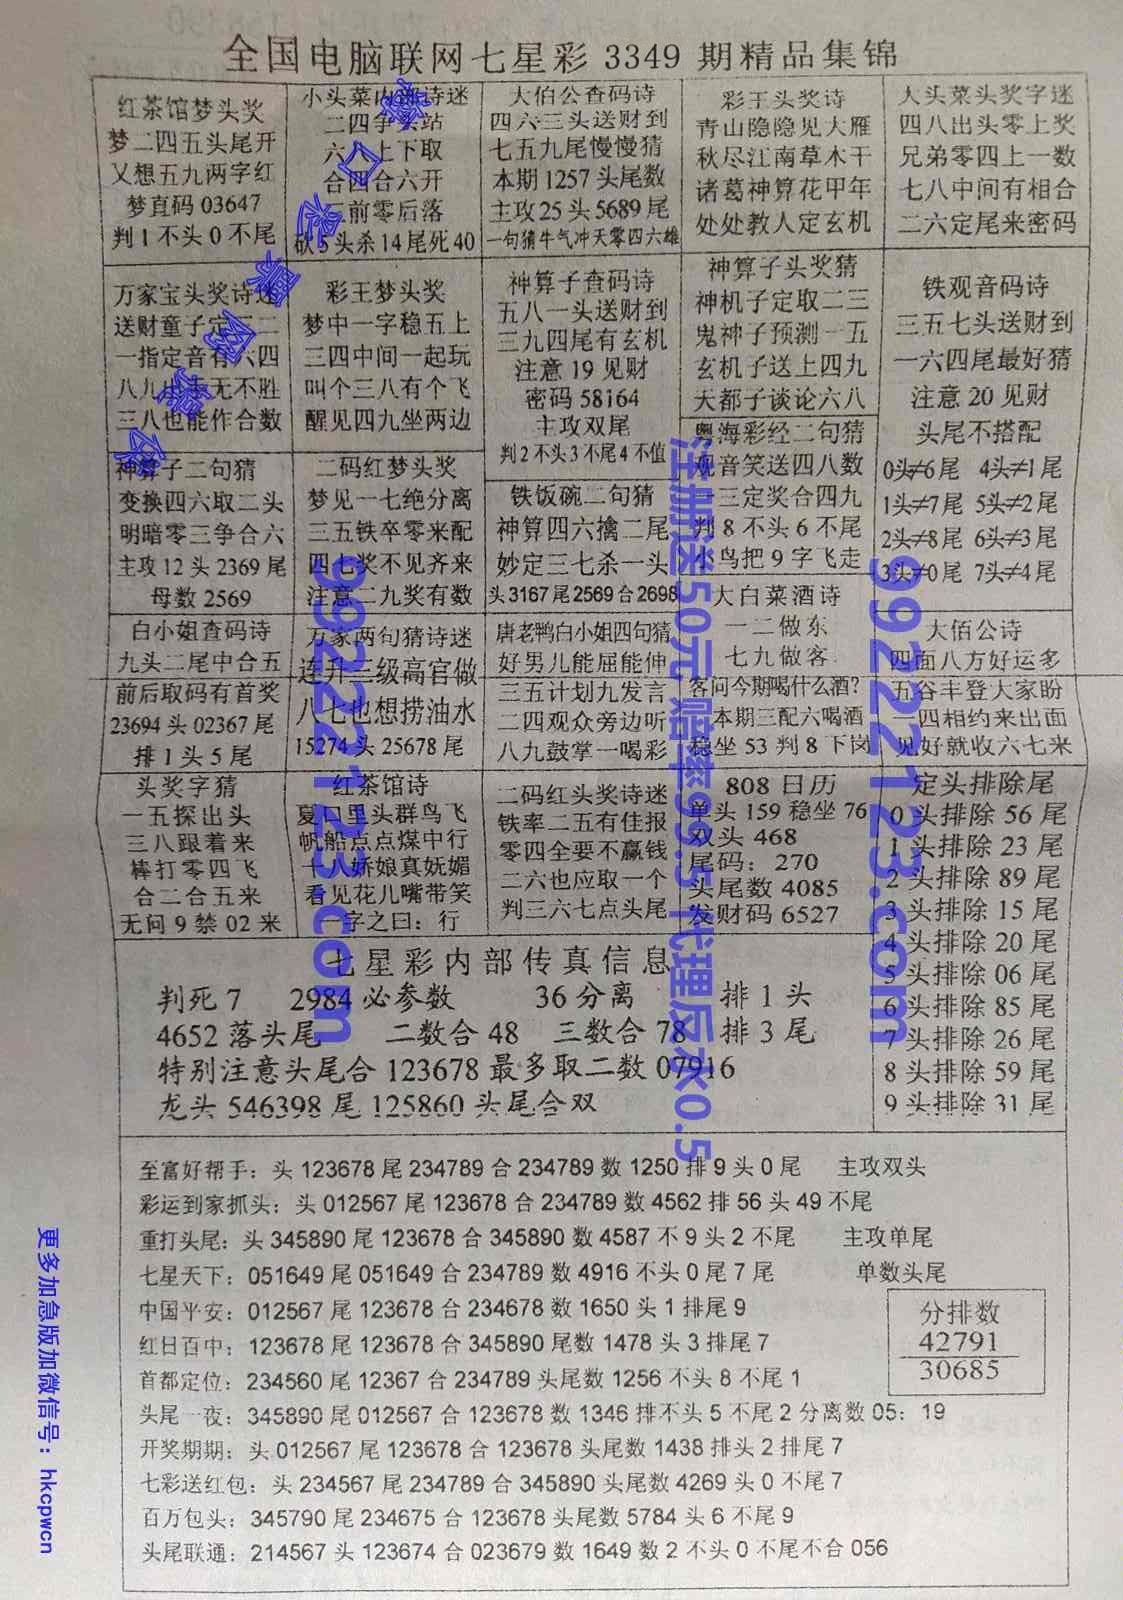 全国电脑联网七星彩 3349 期精品集锦
红茶馆梦头奖
梦二四五头尾开
又想五九两字红
梦直码 03647
判 1 不头 0 不尾
小头菜内部诗迷
二四争头站
六八上下取
合四合六开
前零后落
砍 5 头杀 14 尾死 40
大伯公查码诗
四六三头送财到
七五九尾慢慢猜
本期 1257 头尾数
主攻 25 头 5689 尾
一句猜牛气冲天零四六雄
彩王头奖诗
青山隐隐见大雁
秋尽江南草木干
诸葛神算花甲年
处处教人定玄机
人头菜头奖字迷
四八出头零上奖
兄弟零四上一数
七八中间有相合
二六定尾来密码
万家宝头奖诗迷
送财童子定二二
一指定音有六四
八九出手无不胜
三八也能作合数
彩王梦头奖
梦中一字稳五上
三四中间一起玩
叫个三八有个飞
醒见四九坐两边
神算子查码诗
五八一头送财到
三九四尾有玄机
注意 19 见财
密码 58164
主攻双尾
判 2 不头 3 不尾 4 不值
神算子头奖猜
神机子定取二三
鬼神子预测一五
玄机子送上四九
天都子谈论六八
铁观音码诗
三五七头送财到
一六四尾最好猜
注意 20 见财
头尾不搭配
0头≠6 尾 4头≠1 尾
1头≠7 尾 5头≠2 尾
2头≠8 尾 6头≠3 尾
3头≠0 尾 7头≠4 尾
神算子二句猜
变换四六取二头
明暗零三争合六
主攻 12 头 2369 尾
母数 2569
二码红梦头奖
梦见一七绝分离
三五铁卒零来配
四七奖不见齐来
注意二九奖有数
铁饭碗二句猜
神算四六擒二尾
妙定三七杀一头
头 3167 尾 2569 合 2698
粤海彩经二句猜
观音笑送四八数
一三定奖合四九
判 8 不头 6 不尾
小鸟把 9 字飞走
白小姐查码诗
九头二尾中合五
前后取码有首奖
23694 头 02367 尾
排 1 头 5 尾
万家两句猜诗迷
连升三级高官做
八七也想捞油水
15274 头 25678 尾
唐老鸭白小姐四句猜
好男儿能屈能伸
三五计划九发言
二四观众旁边听
八九鼓掌一喝彩
大白菜酒诗
一二做东
七九做客
客问今期喝什么酒?
本期三配六喝酒
稳坐 53 判 8 下岗
大佰公诗
四面八方好运多
五谷丰登大家盼
一四相约来出面
见好就收六七来
头奖字猜
一五探出头
三八跟着来
棒打零四飞
合二合五来
无问 9 禁 02 来
红茶馆诗
夏口里头群鸟飞
帆船点点煤中行
十八娇娘真妩媚
看见花儿嘴带笑
一字之曰：行
二码红头奖诗迷
铁率二五有佳报
零四全要不赢钱
二六也应取一个
判三六七点头尾
808 日历
单头 159 稳坐 76
双头 468
尾码：270
头尾数 4085
发财码 6527
定头排除尾
0 头排除 56 尾
1 头排除 23 尾
2 头排除 89 尾
3 头排除 15 尾
4 头排除 20 尾
5 头排除 06 尾
6 头排除 85 尾
7 头排除 26 尾
8 头排除 59 尾
9 头排除 31 尾
七星彩内部传真信息
判死 7 2984 必参数 36 分离 排 1 头
4652 落头尾 二数合 48 三数合 78 排 3 尾
特别注意头尾合 123678 最多取二数 07916
龙头 546398 尾 125860 头尾合双
至富好帮手：头 123678 尾 234789 合 234789 数 1250 排 9 头 0 尾 主攻双头
彩运到家抓头：头 012567 尾 123678 合 234789 数 4562 排 56 头 49 不尾
重打头尾：头 345890 尾 123678 合 345890 数 4587 不 9 头 2 不尾 主攻单尾
七星天下：051649 尾 051649 合 234789 数 4916 不头 0 尾 7 尾 单数头尾
中国平安：012567 尾 123678 合 234678 数 1650 头 1 排尾 9
红日百中：123678 尾 123678 合 345890 尾数 1478 头 3 排尾 7
首都定位：234560 尾 12367 合 234789 头尾数 1256 不头 8 不尾 1
头尾一夜：345890 尾 012567 合 123678 数 1346 排不头 5 不尾 2 分离数 05：19
开奖期期：头 012567 尾 123678 合 123678 头尾数 1438 排头 2 排尾 7
七彩送红包：头 234567 尾 234789 合 345890 头尾数 4269 头 0 不尾 7
百万包头：345790 尾 234675 合 123678 头尾数 5784 头 6 不尾 9
头尾联通：214567 头 123674 合 023679 数 1649 数 2 不头 0 不尾不合 056
分排数
42791
30685
99222123.com
注册送50元 赔率99.5代理反水0.5
99222123.com
更多加急版加微信号：hkcpwcn